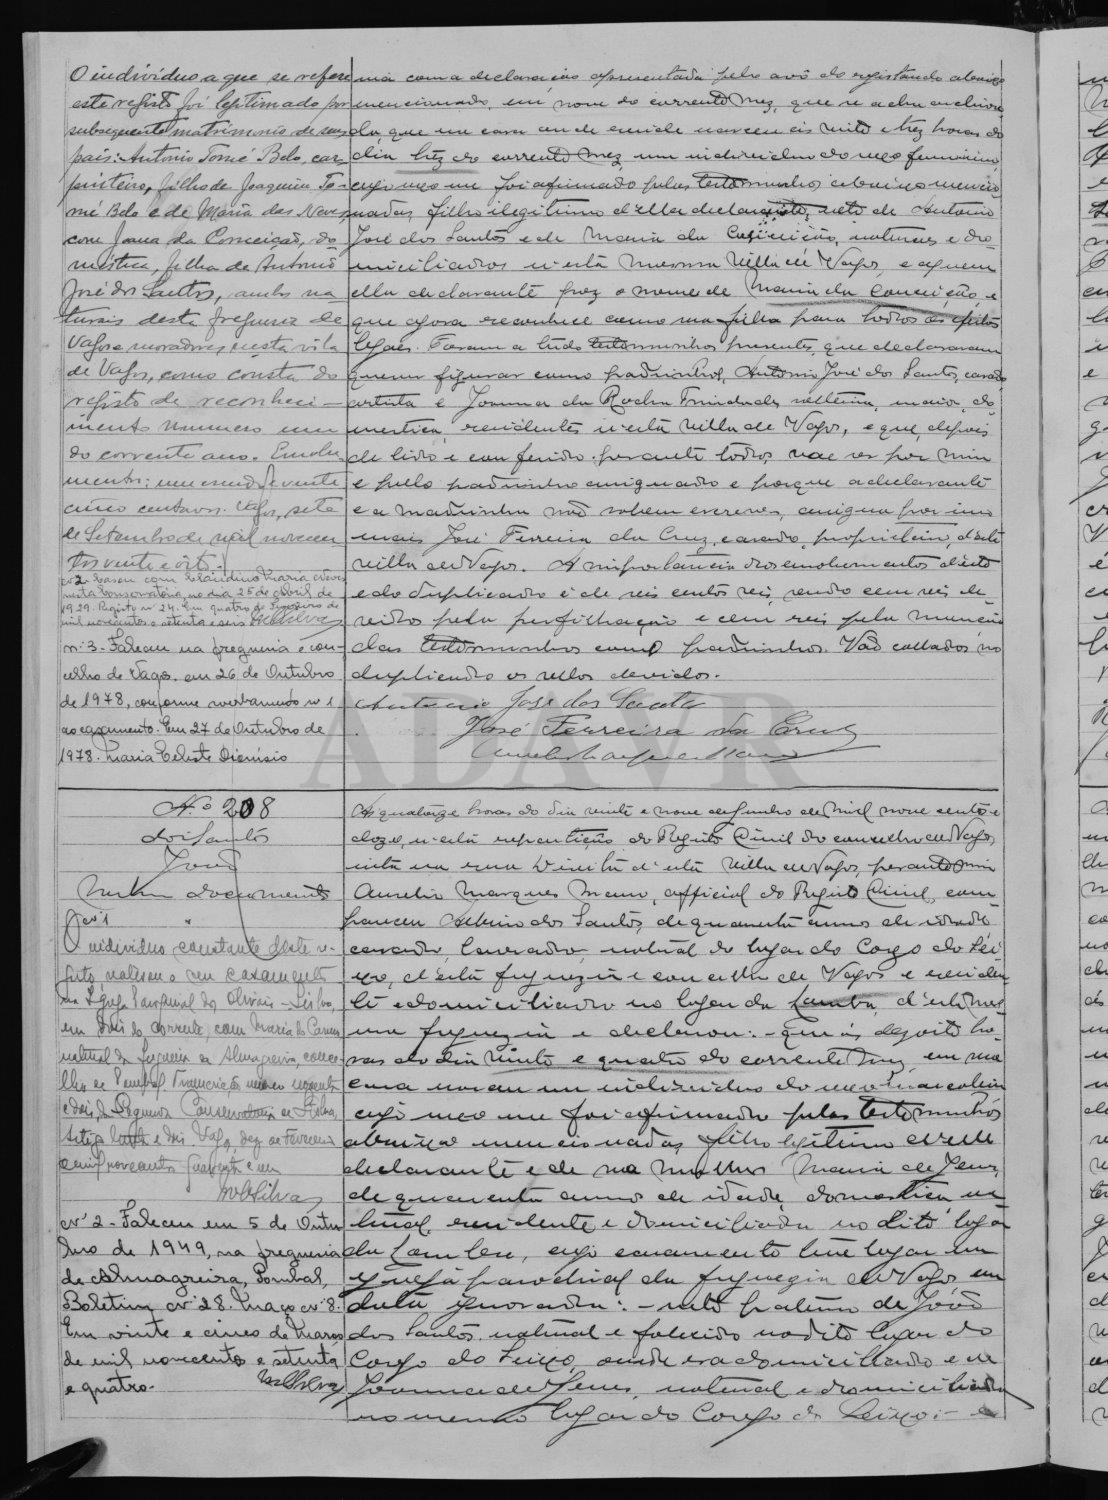 O indivíduo a que se refere
este registo foi legitimado por
subsequente matrimonio de seus
pais: Antonio Tomé Belo, car-
pinteiro, filho de Joaquim To-
mé Belo e de Maria das Neves
com Joana da Conceição, do-
mestica, filha de António
José dos Santos, ambos na-
turais desta freguesia de
Vagos e moradores nesta vila
de Vagos, como consta do
registo de reconheci-
mento numero um
do corrente ano. Emolu-
mentos: um escudo e vinte
cinco centavos. Vagos, sete
de Setembro de mil novecen-
tos vinte e oito.
nº 2 Casou com Claudino Maria Neves
nesta Conservatória, no dia 25 de Abril de
1929. Registo nº 24. Em quatro de Fevereiro de
mil novecentos e setenta e seis MSilva
nº 3 - Faleceu na freguesia e con-
celho de Vagos em 26 de Outubro
de 1978, conforme averbamento nº 1
ao casamento. Em 27 de Outubro de
1978. Maria Celeste Dionísio
ma com a declaração apresentada pelo avô do registando abaixo
mencionado, em nove do corrente mez, que se acha archiva-
da, que em casa onde reside nasceu ás vinte e trez horas do
dia trez do corrente mez um individuo do sexo feminino,
cujo sexo me foi afirmado pelas testemunhas abaixo mencio-
nadas, filho ilegitimo d'ella declarante, neto de Antonio
José dos Santos e de Maria da Conceição, naturaes e do-
miciliados n'esta mesma Villa de Vagos, e a quem
ella declarante poz o nome de Maria da Conceição e
que agora reconhece como sua filha para todos os efeitos
legaes. Foram a tudo testemunhas presentes, que declararam
querer figurar como padrinhos, Antonio José dos Santos, casado
artista e Joanna da Rocha Trindade, solteira, maior, do-
mestica, residentes n'esta Villa de Vagos, e que, depois
de lido e conferido perante todos, vae ser por mim
e pelo padrinho assignado e porque a declarante
e a madrinha não sabem escrever, assigna por uma
mais José Ferreira da Cruz, casado, proprietario, d'esta
villa de Vagos. A importancia dos emolumentos d'este
e do duplicado é de seis centos reis, sendo cem reis de-
vidos pela perfilhação e cem reis pela menção
das testemunhas como padrinhos. Vão collados no
duplicado os sellos devidos.
Antonio José dos Santos
José Ferreira da Cruz
Aurelio Marques Mano
ADAVR
N.º 208
dos Santos
João
Nenhum documento
Nº 1
O individuo constante deste re-
gisto, celebrou o seu casamento
na Igreja Paroquial dos Olivais - Lisboa,
em dois do corrente, com Maria do Carmo
natural da freguesia de Almagreira, conce-
lho de Pombal. Transcrição numero noventa
e dois, da Segunda Conservatoria de Lisboa,
Vagos, dez de Fevereiro
de mil novecentos quarenta e um
MSilva
nº 2 - Faleceu em 5 de Outu-
bro de 1949, na freguesia
de Almagreira, Pombal,
Boletim nº 28. Maço nº 8.
Em vinte e cinco de Março
de mil novecentos e setenta
e quatro. MSilva
Ás quatorze horas do dia vinte e nove de Junho de mil nove centos e
doze, n'esta repartição do Registo Civil do concelho de Vagos,
sita na rua Direita d'esta Villa de Vagos, perante mim
Aurelio Marques Mano, official do Registo Civil, com-
pareceu Albino dos Santos, de quarenta annos de idade
casado, lavrador, natural do logar do Corgo do Sei-
xo, d'esta freguezia e concelho de Vagos e residen-
te e domiciliado no logar da Lomba, d'esta mes-
ma freguezia e declarou: - Que ás dezoito ho-
ras do dia vinte e quatro do corrente mez, em sua
casa nasceu um individuo do sexo masculino
cujo sexo me foi afirmado pelas testemunhas
abaixo mencionadas, filho legitimo d'elle
declarante e de sua mulher Maria de Jesus,
de quarenta annos de idade, domestica, na-
tural, residente e domiciliada no dito logar
da Lomba, cujo casamento teve logar na
igreja parochial da freguezia de Vagos em
data ignorada: - neto paterno de João
dos Santos, natural e falecido no dito logar do
Corgo do Seixo, onde era domiciliado e de
Joanna de Jesus, natural e domiciliada
no mesmo logar do Corgo do Seixo: - e